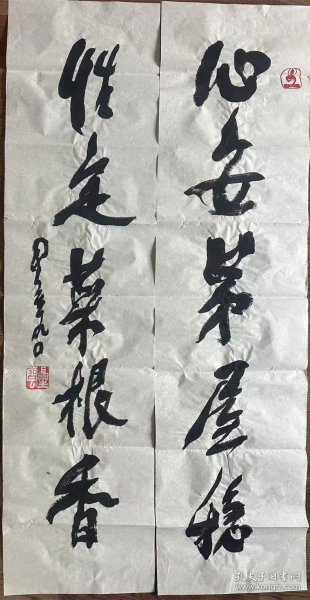 心安茅屋稳
性定菜根香
孔夫子旧书网